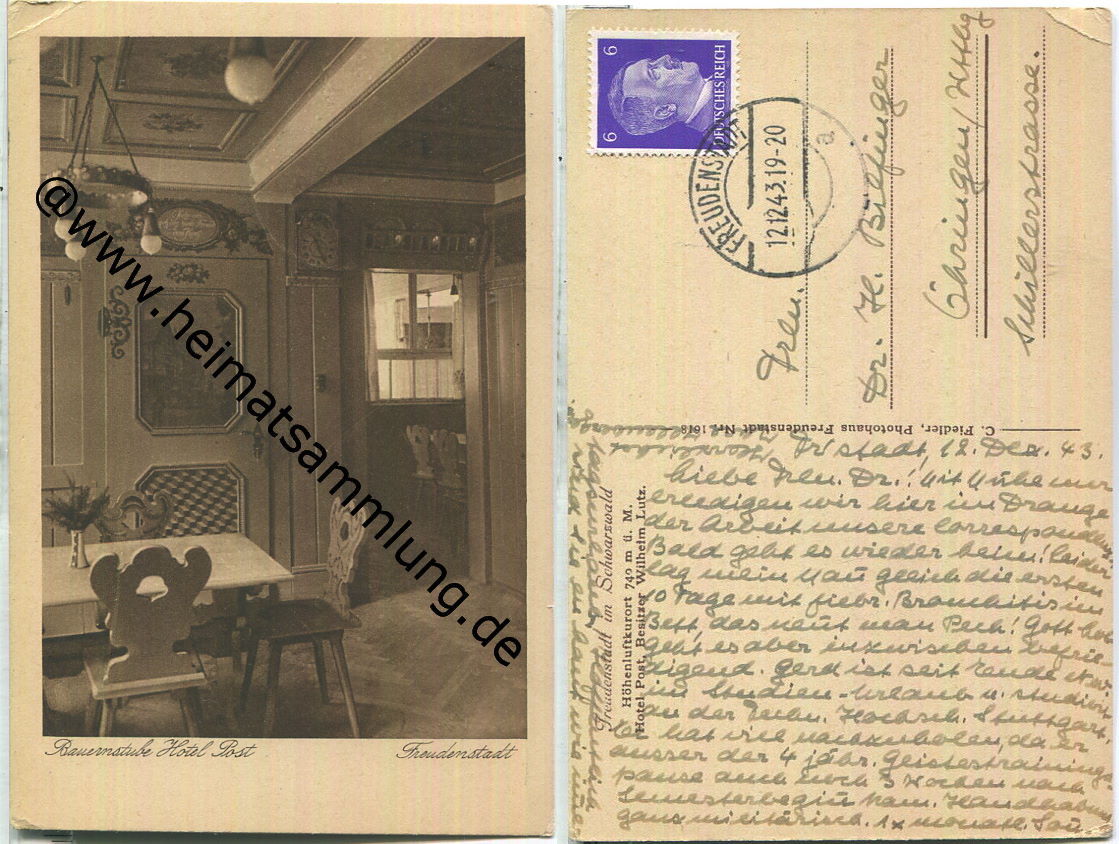 @www.heimatsammlung.de
Bauernstube Hotel Post
Freudenstadt
6 6
DEUTSCHES REICH
FREUDENSTADT
12.12.43.19-20
a
Frln.
Dr. H. Bießinger
Öhringen/Wttbg
Schillerstrasse.
C. Fiedler, Photohaus Freudenstadt Nr. 1618
Freudenstadt im Schwarzwald
Höhenluftkurort 740 m ü. M.
Hotel Post, Besitzer Wilhelm Lutz.
Fr/stadt, 12. Dez. 43.
Liebe Frln. Dr.! Mit Mühe nur
erledigen wir hier im Drange
der Arbeit unsere Correspondenz
Bald geht es wieder heim! Leider
lag mein Mann gleich die ersten
10 Tage mit fiebr. Bronchitis im
Bett, das nennt man Pech! Gott lob
geht es aber inzwischen befrie-
digend. Gerd ist seit Ende
im Studien-Urlaub u. studiert
an der Techn. Hochsch. Stuttgart.
Er hat viel nachzuholen, da er
ausser der 4 jähr. Geistestrainings-
pause auch noch 3 Wochen nach
Semesterbeginn kam. Handhabung
ganz militärisch. 1x monatl.